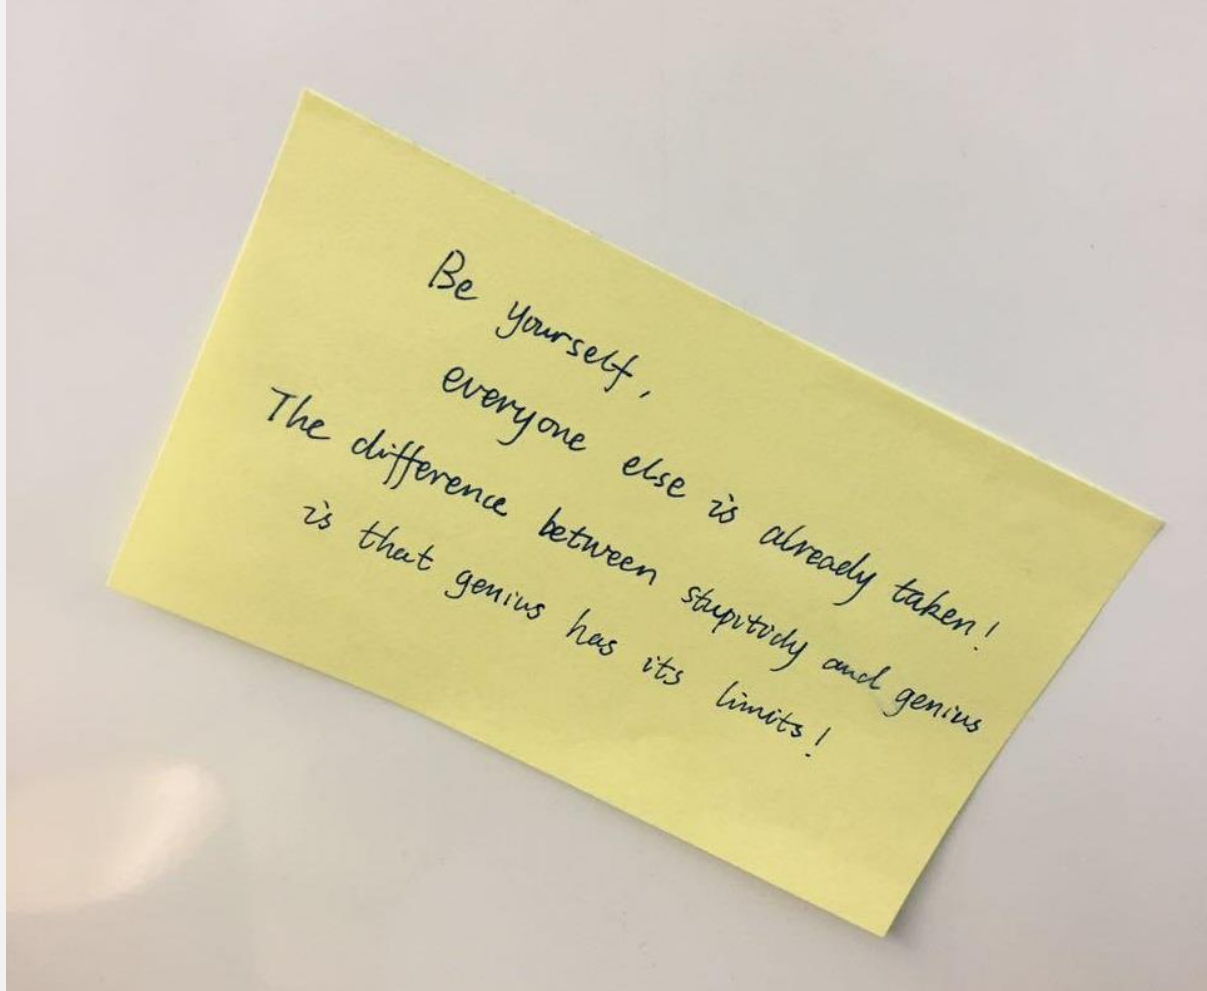 Be yourself,
everyone else is already taken!
The difference between stupitidy and genius
is that genius has its limits!